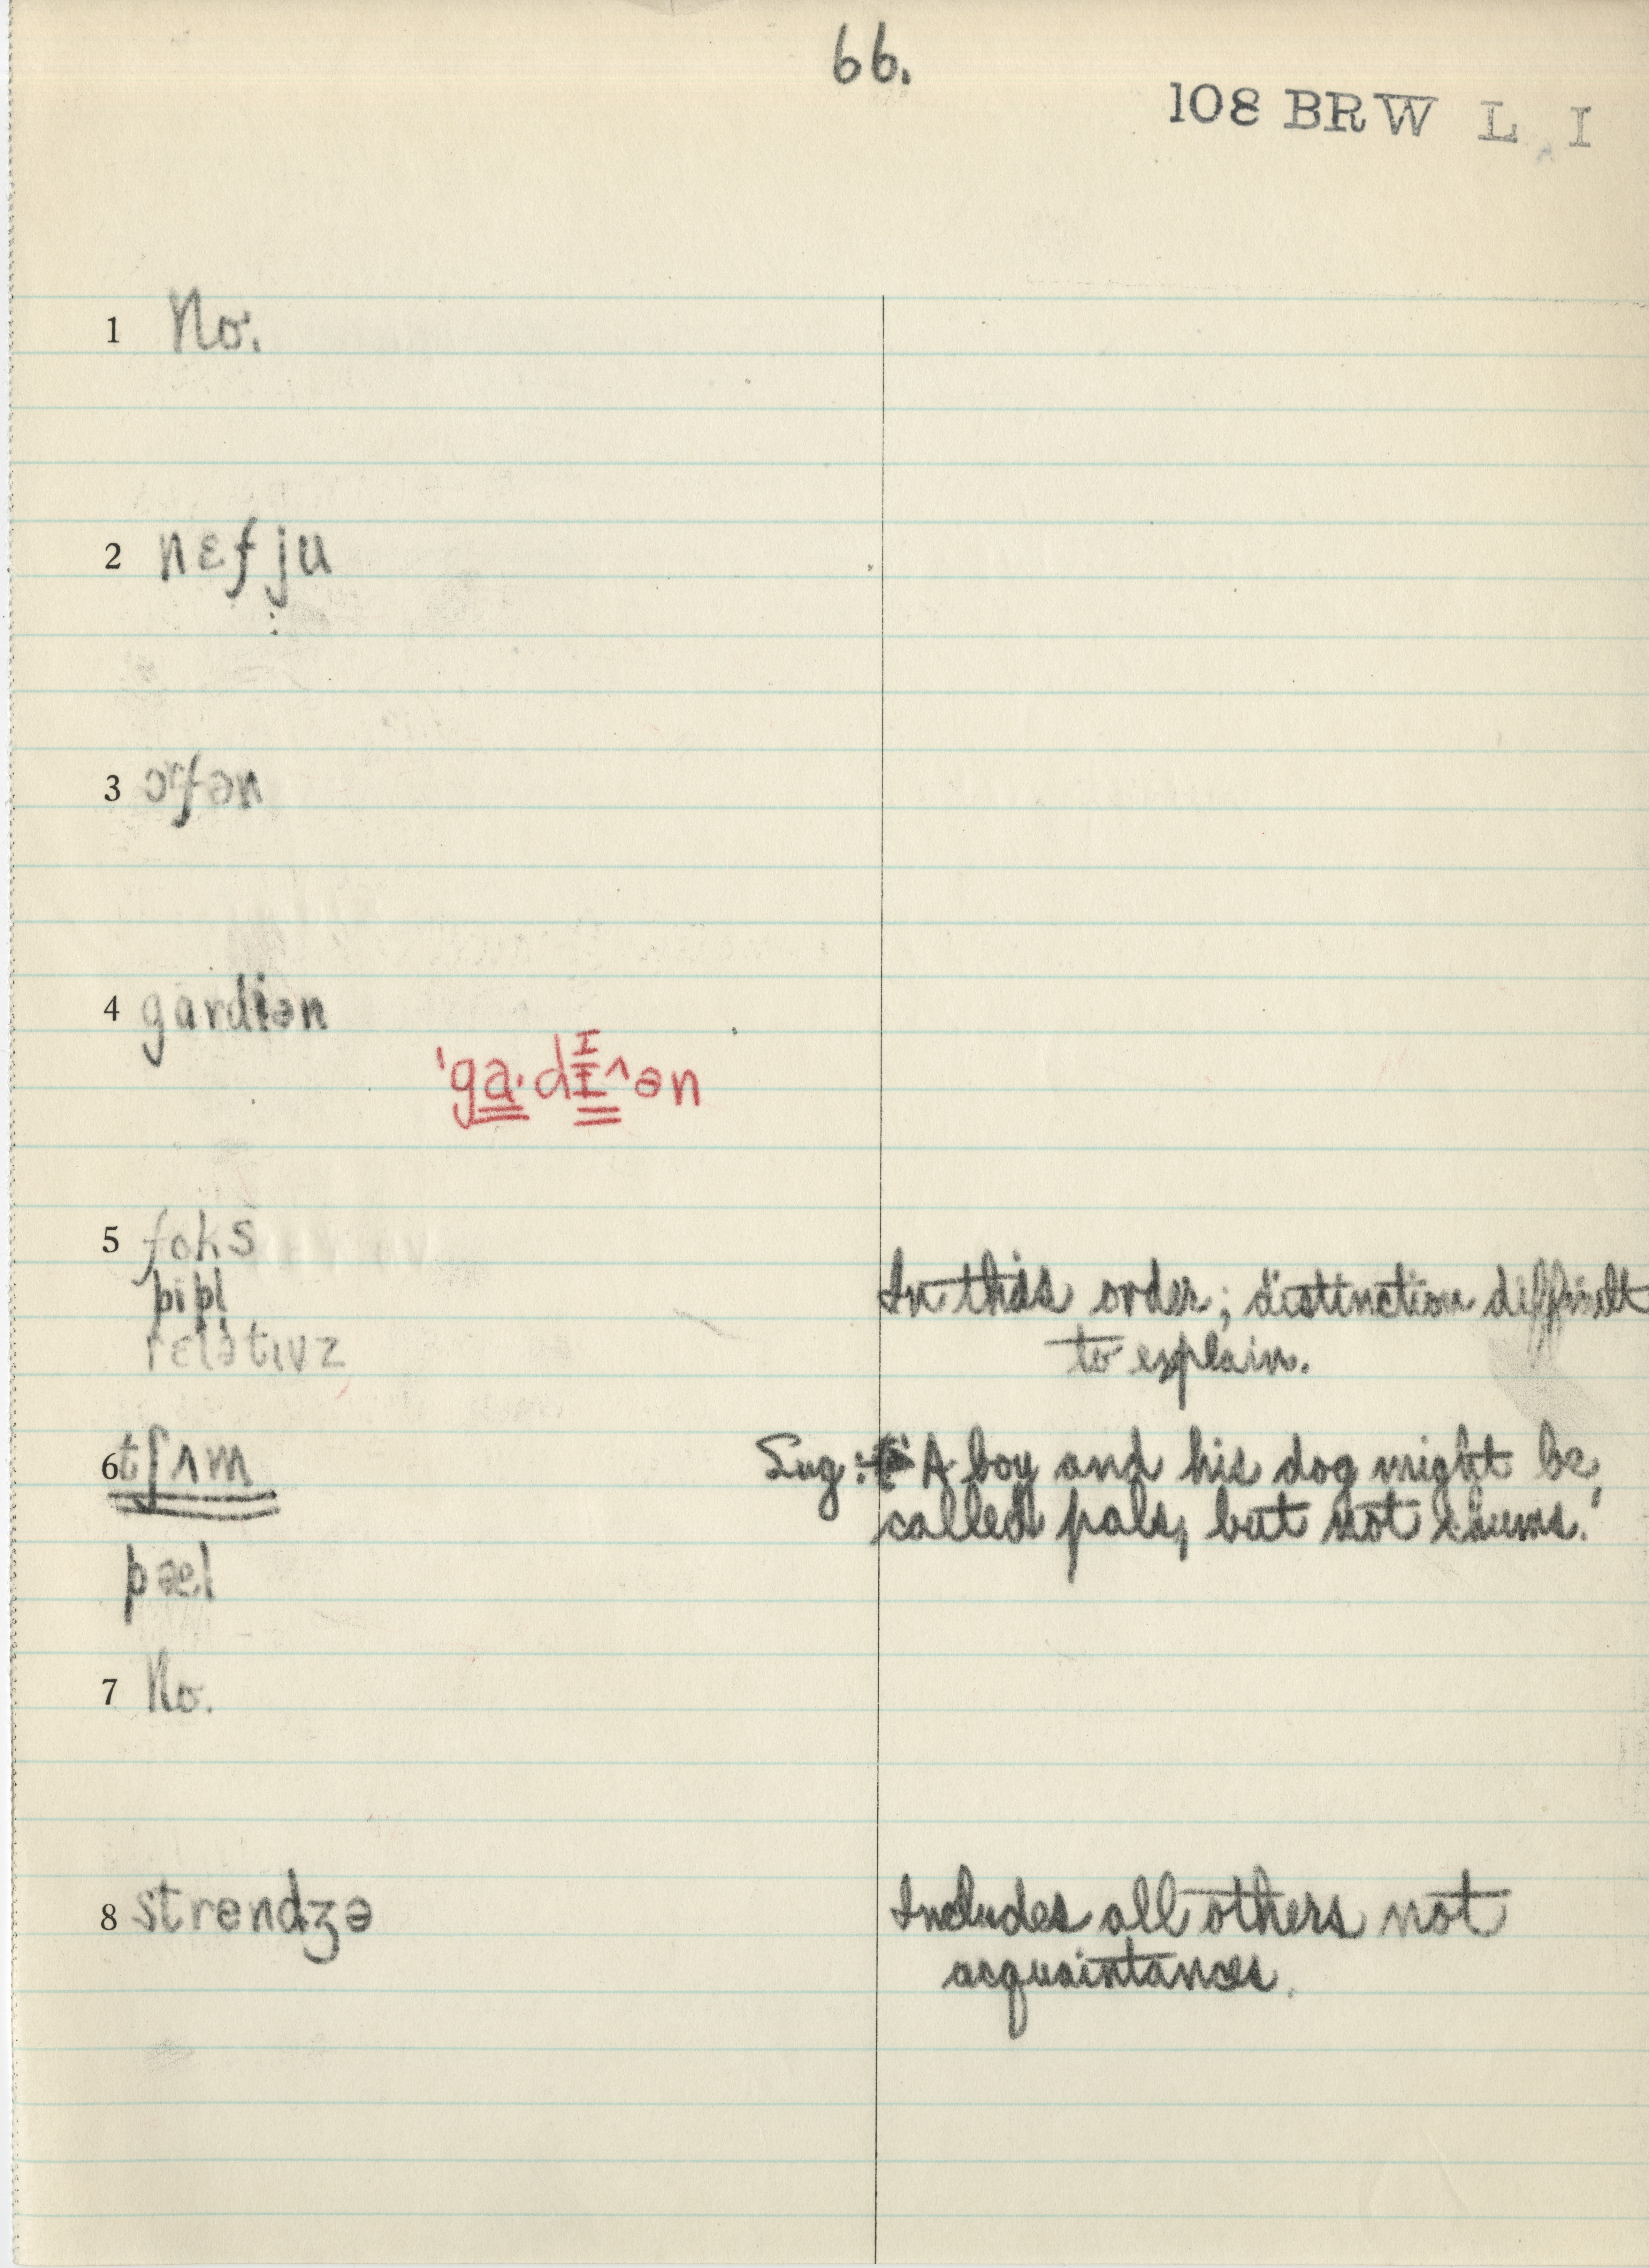 66.
108 BRW L I
1 No.
2 nɛfju
3 ɔrfən
4 gardiən
'ga·dI^ən
5 foks
pipl̩
In this order; distinction difficult
relətɪvz
to explain.
6 tʃʌm
Sug: 'A boy and his dog might be
called pals, but not chums.'
pæl
7 No.
8 strendʒə
Includes all others not
acquaintances.